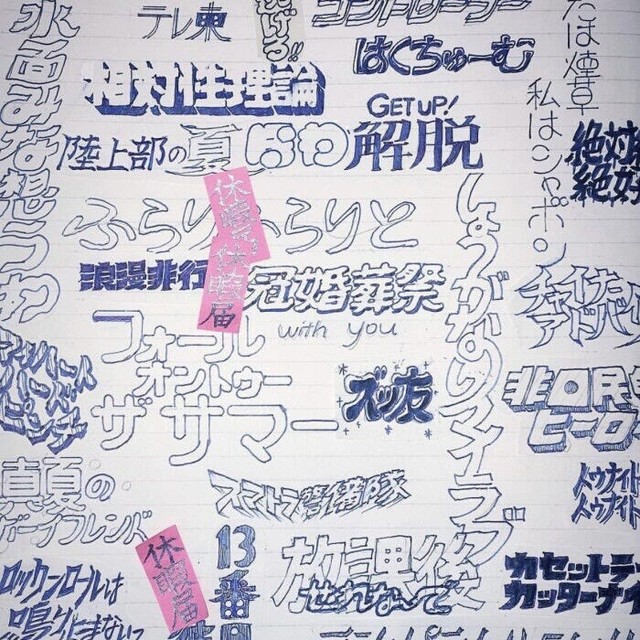 テレ東
コントローラー
はくちゅーむ
相対性理論
GET UP!
解脱
陸上部の夏
ほわ
たほ煙草
私はシャボン
水面みな想うわ
絶対
絶好
休暇届
ふらりふらりと
休暇届
浪漫非行
冠婚葬祭
with you
しょうがないマイラブ
チャイナ
アドバイ
フォール
オントゥー
ザサマー
ズッ友
非口
ヒーロ
真夏の
ボーイフレンド
スマトラ警備隊
トゥナイト
トゥナイト
休暇届
13番
放課後
せれなーで
カセットテ
カッターナイ
ロックンロールは
鳴り止まないっ